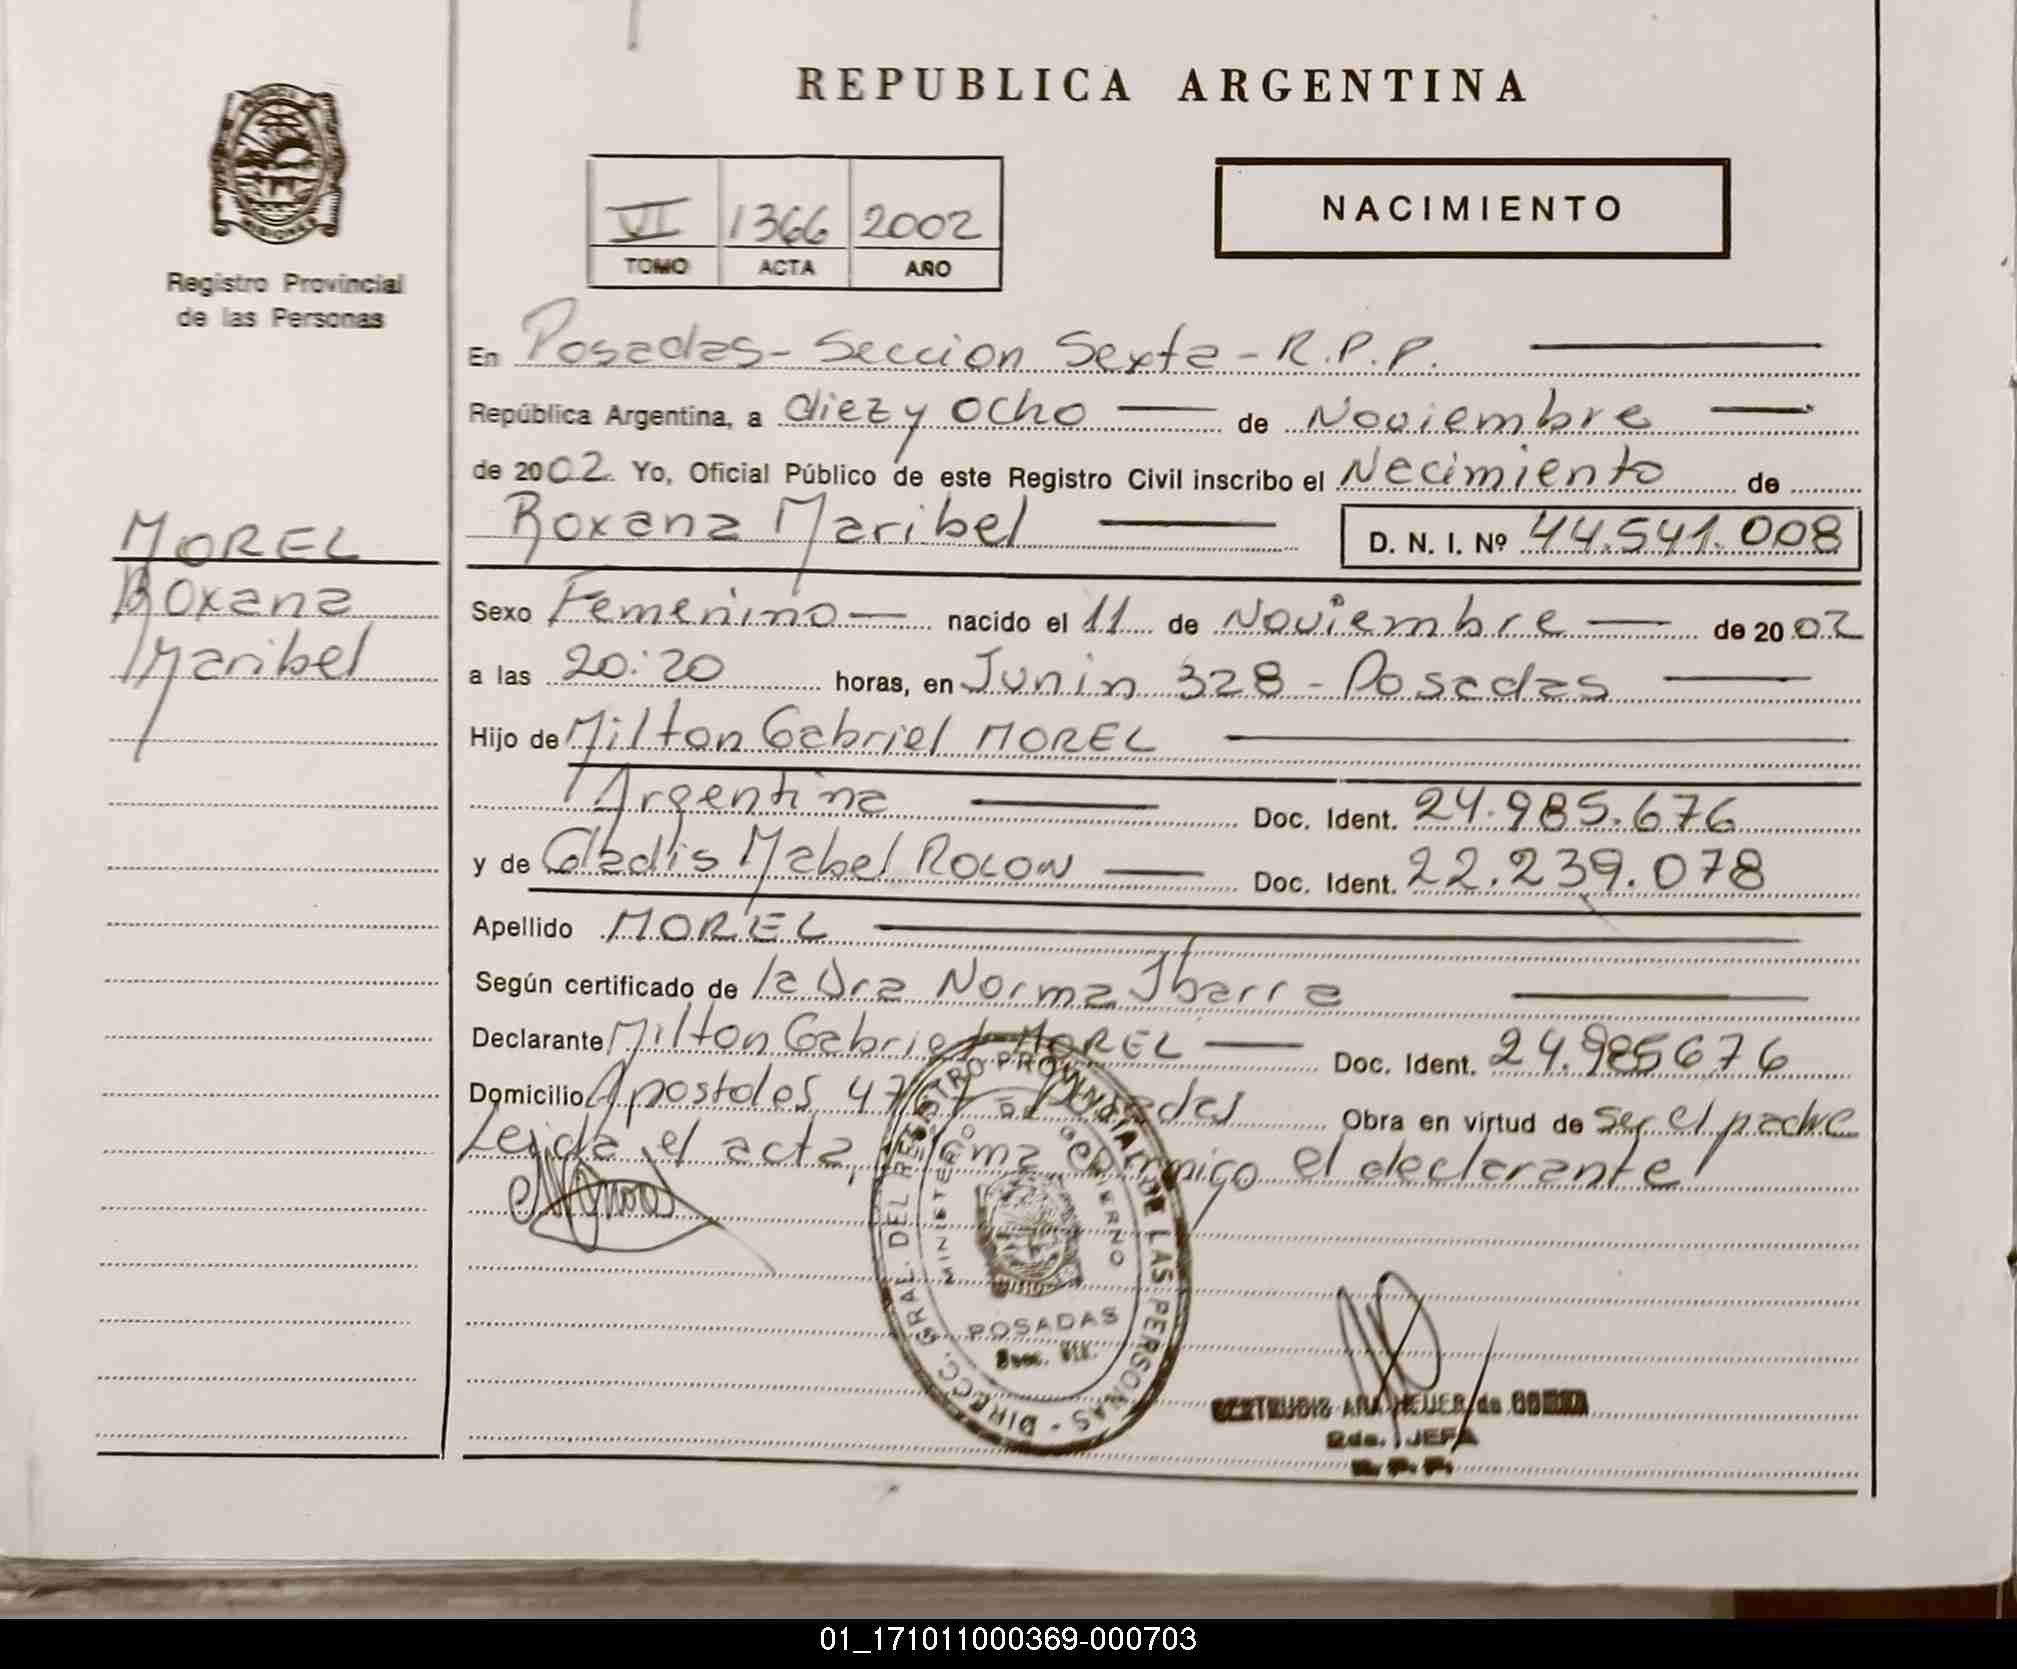 REPUBLICA ARGENTINA
NACIMIENTO
VI 1366 2002
TOMO ACTA AÑO
Registro Provincial
de las Personas
MOREL
Roxana
Maribel
En Posadas - Seccion Sexta - R.P.P.
República Argentina, a diez y ocho de Noviembre
de 2002 Yo, Oficial Público de este Registro Civil inscribo el Nacimiento de
Roxana Maribel D. N. I. Nº 44.541.008
Sexo Femenino nacido el 11 de Noviembre de 2002
a las 20:20 horas, en Junin 328 - Posadas
Hijo de Milton Gabriel MOREL
Argentina Doc. Ident. 24.985.676
y de Gladis Mabel ROLON Doc. Ident. 22.239.078
Apellido MOREL
Según certificado de la Dra Norma Ibarra
Declarante Milton Gabriel MOREL Doc. Ident. 24.985676
Domicilio Apostoles Posadas Obra en virtud de ser el padre
Leida el acta, firma conmigo el declarante
DIRECC. GRAL. DEL REGISTRO PROVINCIAL DE LAS PERSONAS -
MINISTERIO GOBIERNO
POSADAS
JEFA
R. P. P.
01_171011000369-000703